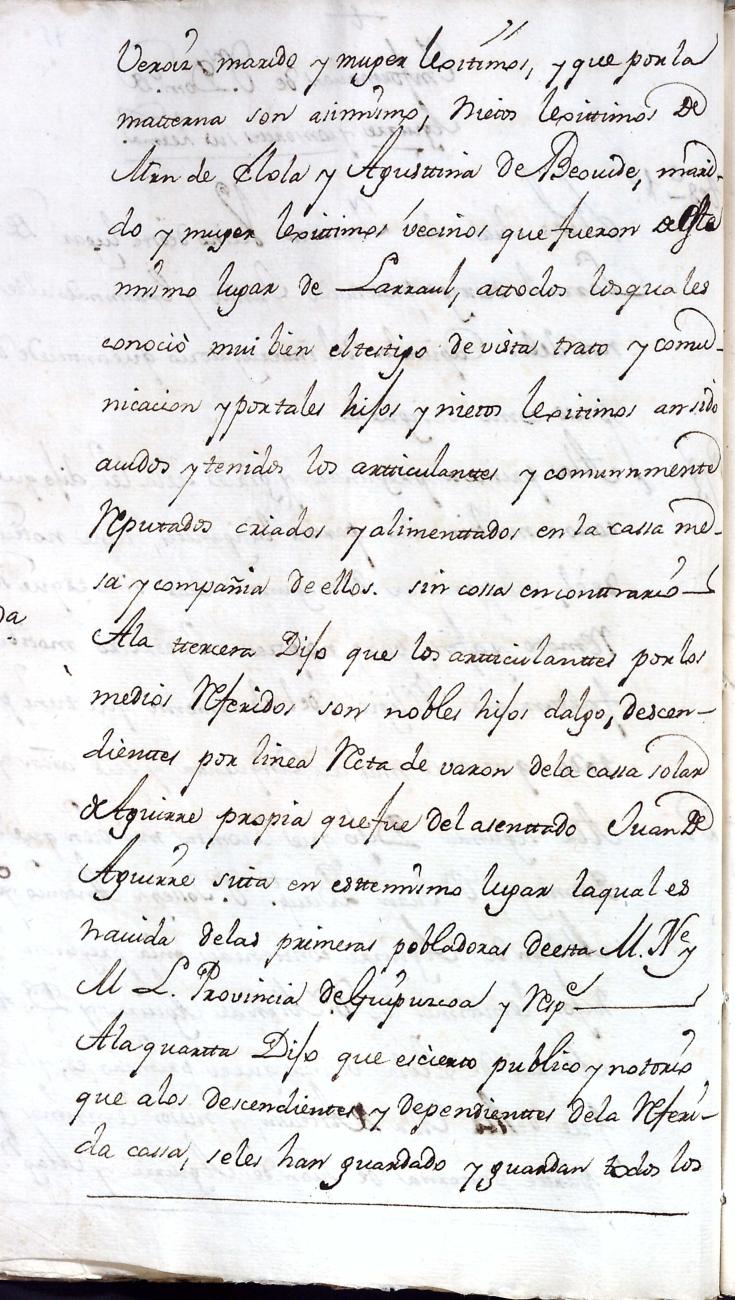 marido y muger lexitimos, y que por la
matterna son asimismo, Nietos lexittimos De
Mrn de Elola y Agusttina de Beovide, mari-
do y muger lexittimos vecinos que fueron de este
mismo lugar de Larraul, attodos los quales
conociò mui bien el testigo de vista trato y comu-
nicacion y por tales hijos y nietos lexitimos an sido
auidos y tenidos los artticulanttes y comunmente
Reputados criados y alimenttados en la cassa me-
sa y compañia de ellos. sin cossa en conttrario
da
A la ttercera Dijo que los artticulanttes por los
medios Referidos son nobles hijos dalgo, descen-
dienttes por linea Recta de varon de la cassa solar
de Aguirre propia que fue del asenttado Juan De
Aguirre sitta en estte mismo lugar la qual es
nacida de las primeras pobladoras de esta M. Ne y
M L. Provincia de Guipuzcoa y Respe
A la quartta Dijo que es cierto publico y notorio
que a los descendientes y dependienttes de la Referi-
da cassa, se les han guardado y guardan todos los